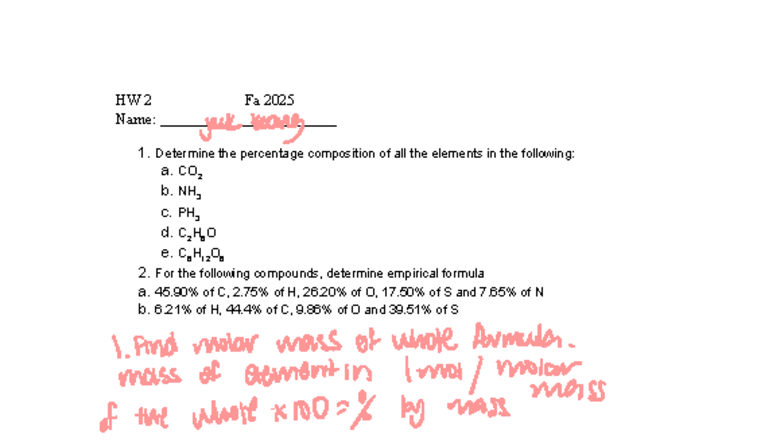 HW 2 Fa 2025
Name:
1. Determine the percentage composition of all the elements in the following:
a. CO₂
b. NH₃
c. PH₃
d. C₂H₆O
e. C₆H₁₂O₆
2. For the following compounds, determine empirical formula
a. 45.90% of C, 2.75% of H, 26.20% of O, 17.50% of S and 7.65% of N
b. 6.21% of H, 44.4% of C, 9.86% of O and 39.51% of S
1. Find molar mass of whole formula.
mass of element in 1 mol / molar
mass
of the whole × 100 = % by mass